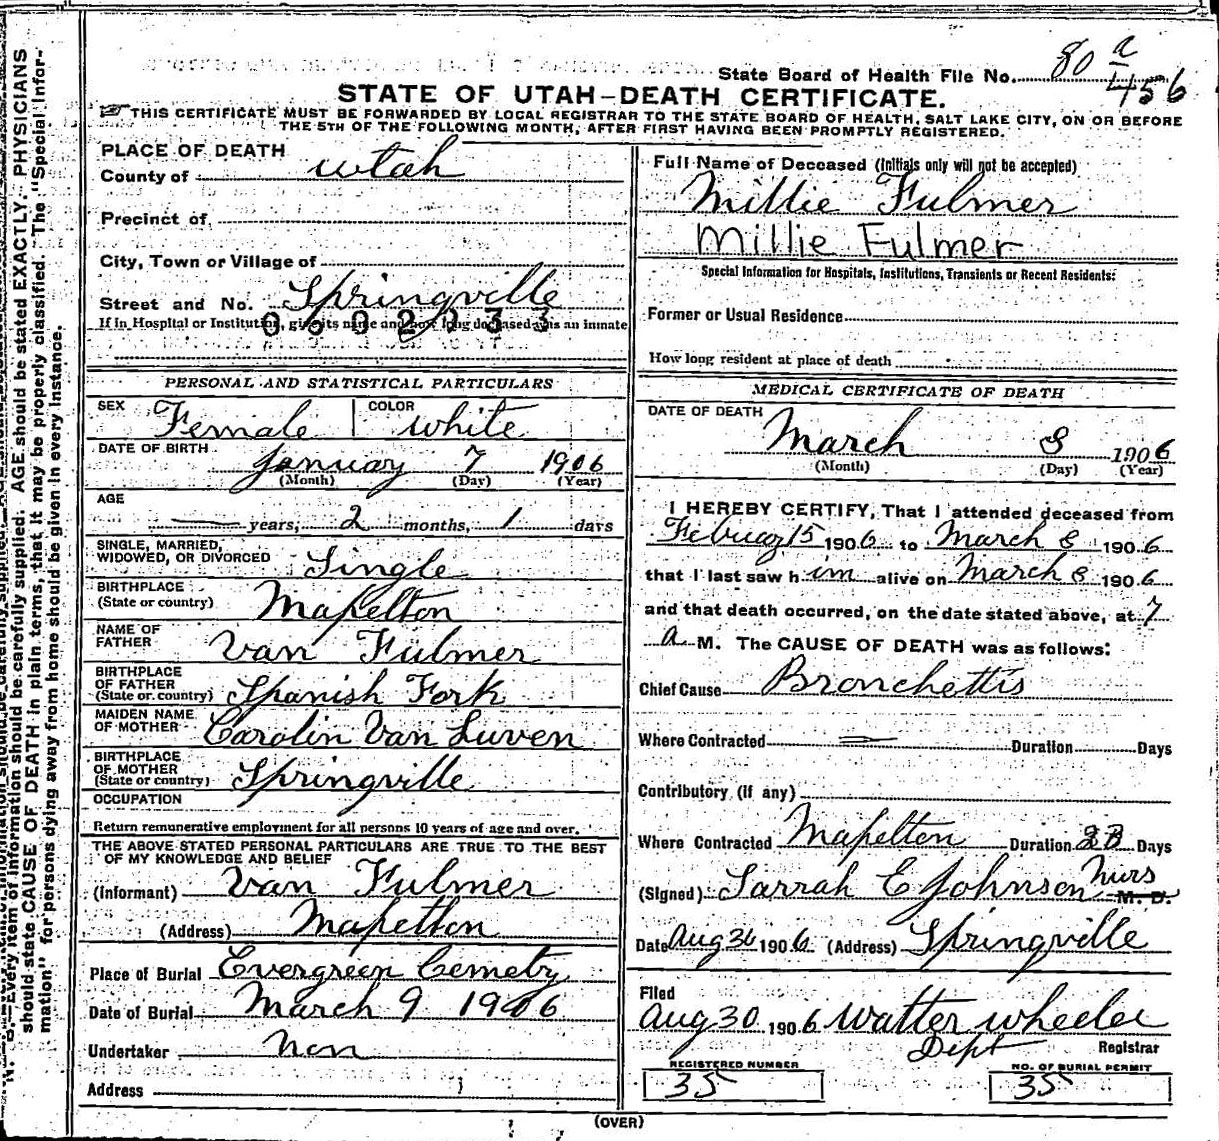 State Board of Health File No. 80 a 456
STATE OF UTAH—DEATH CERTIFICATE.
THIS CERTIFICATE MUST BE FORWARDED BY LOCAL REGISTRAR TO THE STATE BOARD OF HEALTH, SALT LAKE CITY, ON OR BEFORE
THE 5TH OF THE FOLLOWING MONTH, AFTER FIRST HAVING BEEN PROMPTLY REGISTERED.
PLACE OF DEATH
County of Utah
Precinct of
City, Town or Village of
Street and No. Springville
If in Hospital or Institution, give its name and how long deceased was an inmate
0602233
PERSONAL AND STATISTICAL PARTICULARS
SEX Female COLOR white
DATE OF BIRTH January 7 1906
(Month) (Day) (Year)
AGE
— years, 2 months, 1 days
SINGLE, MARRIED,
WIDOWED, OR DIVORCED Single
BIRTHPLACE
(State or country) Mapelton
NAME OF
FATHER Van Fulmer
BIRTHPLACE
OF FATHER
(State or country) Spanish Fork
MAIDEN NAME
OF MOTHER Carolin Van Luven
BIRTHPLACE
OF MOTHER
(State or country) Springville
OCCUPATION
Return remunerative employment for all persons 10 years of age and over.
THE ABOVE STATED PERSONAL PARTICULARS ARE TRUE TO THE BEST
OF MY KNOWLEDGE AND BELIEF
(Informant) Van Fulmer
(Address) Mapelton
Place of Burial Evergreen Cemetry
Date of Burial March 9 1906
Undertaker non
Address
Full Name of Deceased (Initials only will not be accepted)
Millie Fulmer
Millie Fulmer
Special Information for Hospitals, Institutions, Transients or Recent Residents:
Former or Usual Residence
How long resident at place of death
MEDICAL CERTIFICATE OF DEATH
DATE OF DEATH
March 8 1906
(Month) (Day) (Year)
I HEREBY CERTIFY, That I attended deceased from
Februay 15 1906 to March 8 1906
that I last saw h im alive on March 8 1906
and that death occurred, on the date stated above, at 7
a M. The CAUSE OF DEATH was as follows:
Chief Cause Bronchettis
Where Contracted — Duration Days
Contributory (if any)
Where Contracted Mapelton Duration Days
(Signed) Sarrah E Johnson nurs M. D.
Date Aug 1906 (Address) Springville
Filed
Aug 30 1906 Walter Wheeler
Dept Registrar
REGISTERED NUMBER
35
NO. OF BURIAL PERMIT
35
(OVER)
N. B.—Every item of information should be carefully supplied. AGE should be stated EXACTLY. PHYSICIANS
should state CAUSE OF DEATH in plain terms, that it may be properly classified. The "Special Infor-
mation" for persons dying away from home should be given in every instance.